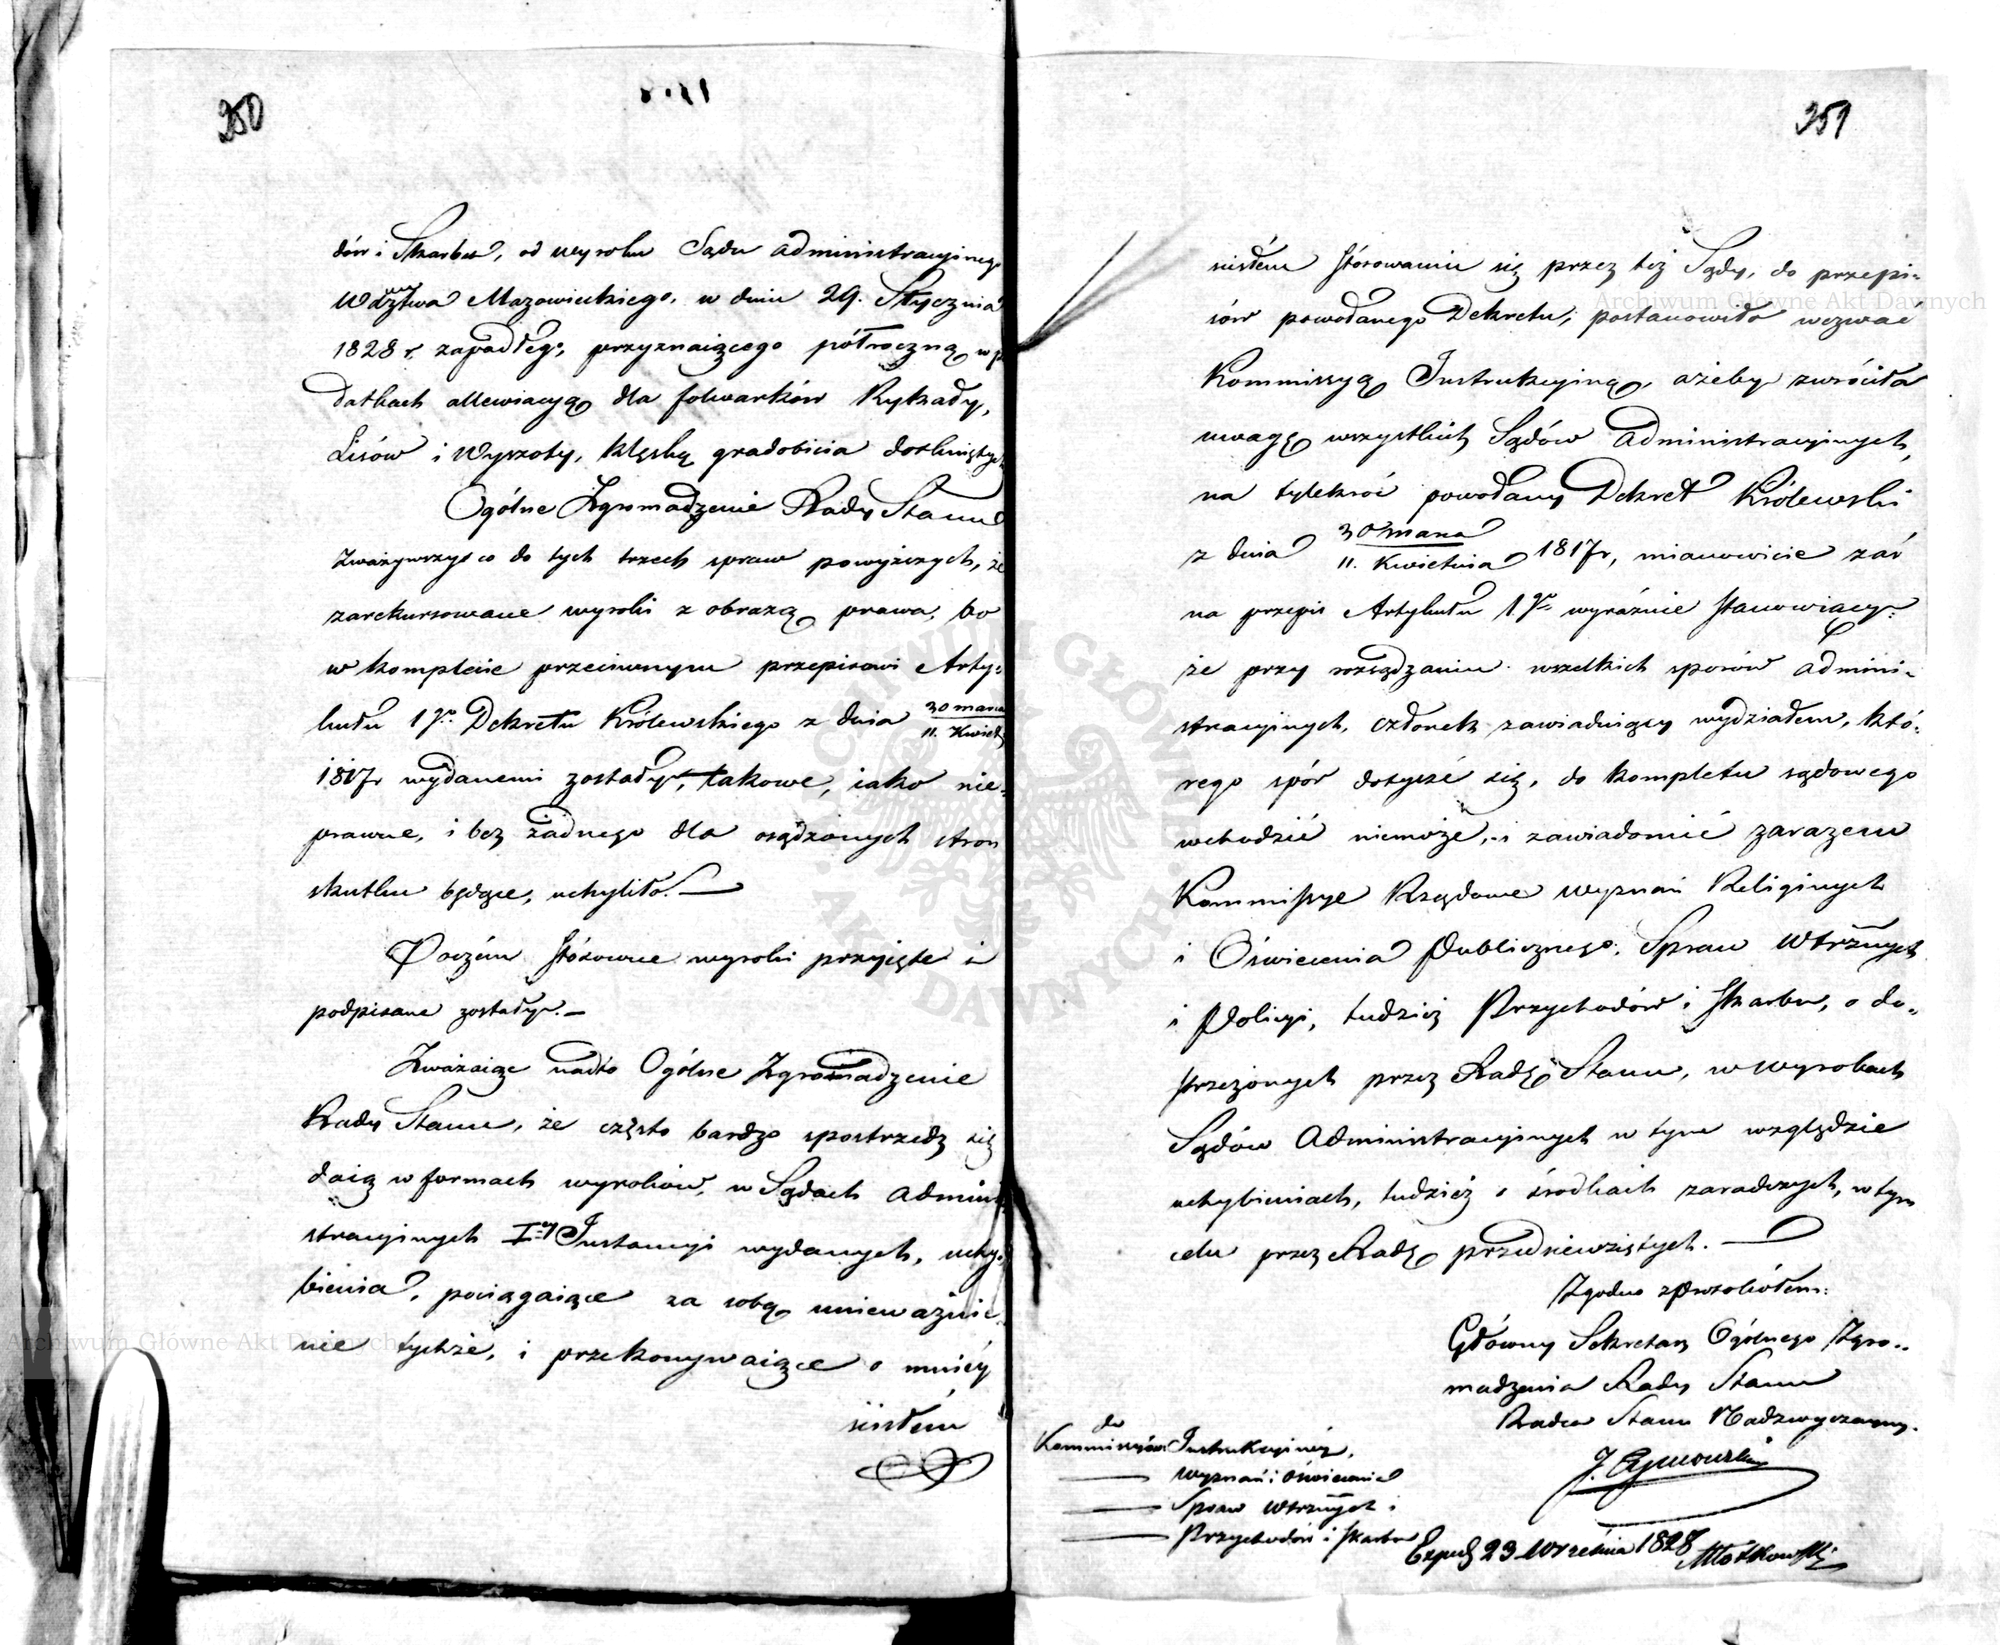 250
dów i Skarbu, od wyroku Sądu administracyinego
Wdztwa Mazowieckiego, w dniu 29. Stycznia
1828 r. zapadłego, przyznaiącego półroczną w po
datkach allewiacyą dla folwarków Rykały,
Lisów i Wyszoty, klęską gradobicia dotkniętych
Ogólne Zgromadzenie Rady Stanu
zważywszy co do tych trzech spraw powyższych, że
zarekursowane wyroki z obrazą prawa, bo
w komplecie przeciwnym przepisowi Arty-
kułu 1go Dekretu Królewskiego z dnia 30 marca / 11. Kwiet
1817r wydanemi zostały, takowe, iako nie-
prawne, i bez żadnego dla osądzonych stron
skutku będące, uchyliło.—
Poczém stósowne wyroki przyięte i
podpisane zostały.—
Zważaiąc nadto Ogólne Zgromadzenie
Rady Stanu, że często bardzo spostrzedz się
daią w formach wyroków, w Sądach admini
stracyinych I-éy Instancyi wydanych, uchy-
bienia, pociągaiące za sobą unieważnie-
nie tychże, i przekonywaiące o mniéy
ścisłém
251
ścisłém stósowaniu się przez też Sądy, do przepi-
sów powołanego Dekretu, postanowiło wezwać
Kommissyą Instrukcyiną, ażeby zwróciła
uwagę wszystkich Sądów administracyinych,
na tylekroć powołany Dekret Królewski
z dnia 30 marca / 11. Kwietnia 1817r, mianowicie zaś
na przepis Artykułu 1go wyraźnie stanowiący:
że przy rozsądzaniu wszelkich sporów admini-
stracyinych, członek zawiaduiący wydziałem, któ-
rego spór dotyczé się, do kompletu sądowego
wchodzić niemoże, i zawiadomić zarazem
Kommissye Rządowe wyznań Religinych
i Oświecenia Publicznego, Spraw Wtrznych
i Policyi, tudzież Przychodów i Skarbu, o do-
strzeżonych przez Radę Stanu, w wyrokach
Sądów Administracyinych w tym względzie
uchybieniach, tudzież o środkach zaradczych, w tym
celu przez Radę przedsiewziętych.—
Zgodno z Protokółem:
Główny Sekretarz Ogólnego Zgro-
madzenia Rady Stanu
Radca Stanu Nadzwyczayny.
do
Kommissyów Instrukcyinéy,
— wyznań i Oświecenia
— Spraw Wtrznych i
— Przychodów i Skarbu
Exped 23 Września 1828
Archiwum Główne Akt Dawnych
Archiwum Główne Akt Dawnych
ARCHIWUM GŁÓWNE AKT DAWNYCH